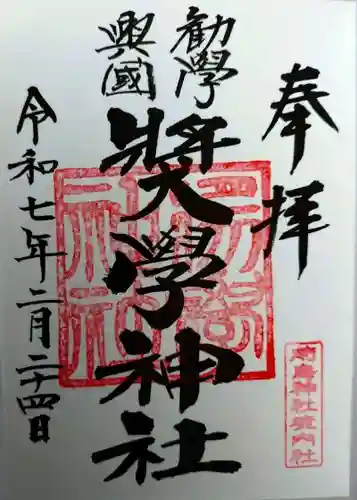 奉拝
勧學
興國
奬學神社
令和七年二月二十四日
神社境内社